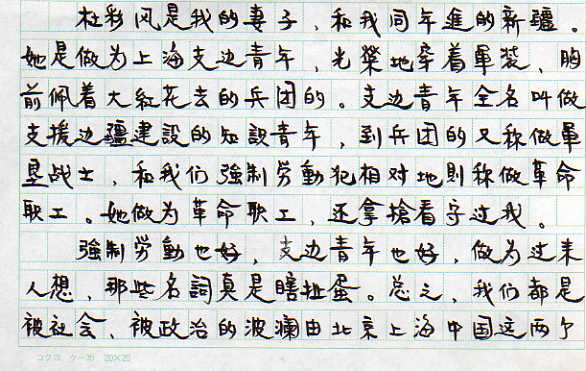 杜彩风是我的妻子，和我同年進的新疆。
她是做为上海支边青年，光榮地穿着軍裝，胸
前佩着大紅花去的兵团的。支边青年全名叫做
支援边疆建設的知識青年，到兵团的又称做軍
墾战士，和我们強制劳動犯相对地則称做革命
职工。她做为革命职工，还拿搶看守过我。
強制劳動也好，支边青年也好，做为过来
人想，那些名詞真是瞎扯蛋。总之，我们都是
被社会、被政治的波瀾由北京上海中国这两个
コクヨ ケ-35 20×20